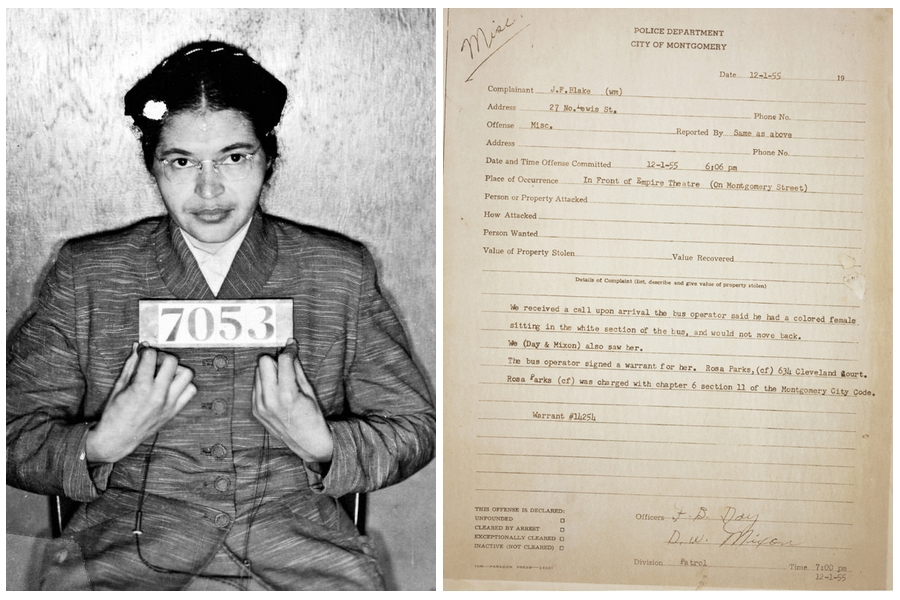 7053
Misc.
POLICE DEPARTMENT
CITY OF MONTGOMERY
Date 12-1-55 19
Complainant J.F.Blake (wm)
Address 27 No. Lewis St. Phone No.
Offense Misc. Reported By Same as above
Address Phone No.
Date and Time Offense Committed 12-1-55 6:06 pm
Place of Occurrence In Front of Empire Theatre (On Montgomery Street)
Person or Property Attacked
How Attacked
Person Wanted
Value of Property Stolen Value Recovered
Details of Complaint (list, describe and give value of property stolen)
We received a call upon arrival the bus operator said he had a colored female
sitting in the white section of the bus, and would not move back.
We (Day & Mixon) also saw her.
The bus operator signed a warrant for her. Rosa Parks,(cf) 634 Cleveland Court.
Rosa Parks (cf) was charged with chapter 6 section 11 of the Montgomery City Code.
Warrant #14254
THIS OFFENSE IS DECLARED:
UNFOUNDED
CLEARED BY ARREST
EXCEPTIONALLY CLEARED
INACTIVE (NOT CLEARED)
Officers F. B. Day
D. W. Mixon
Division Patrol Time 7:00 pm
12-1-55